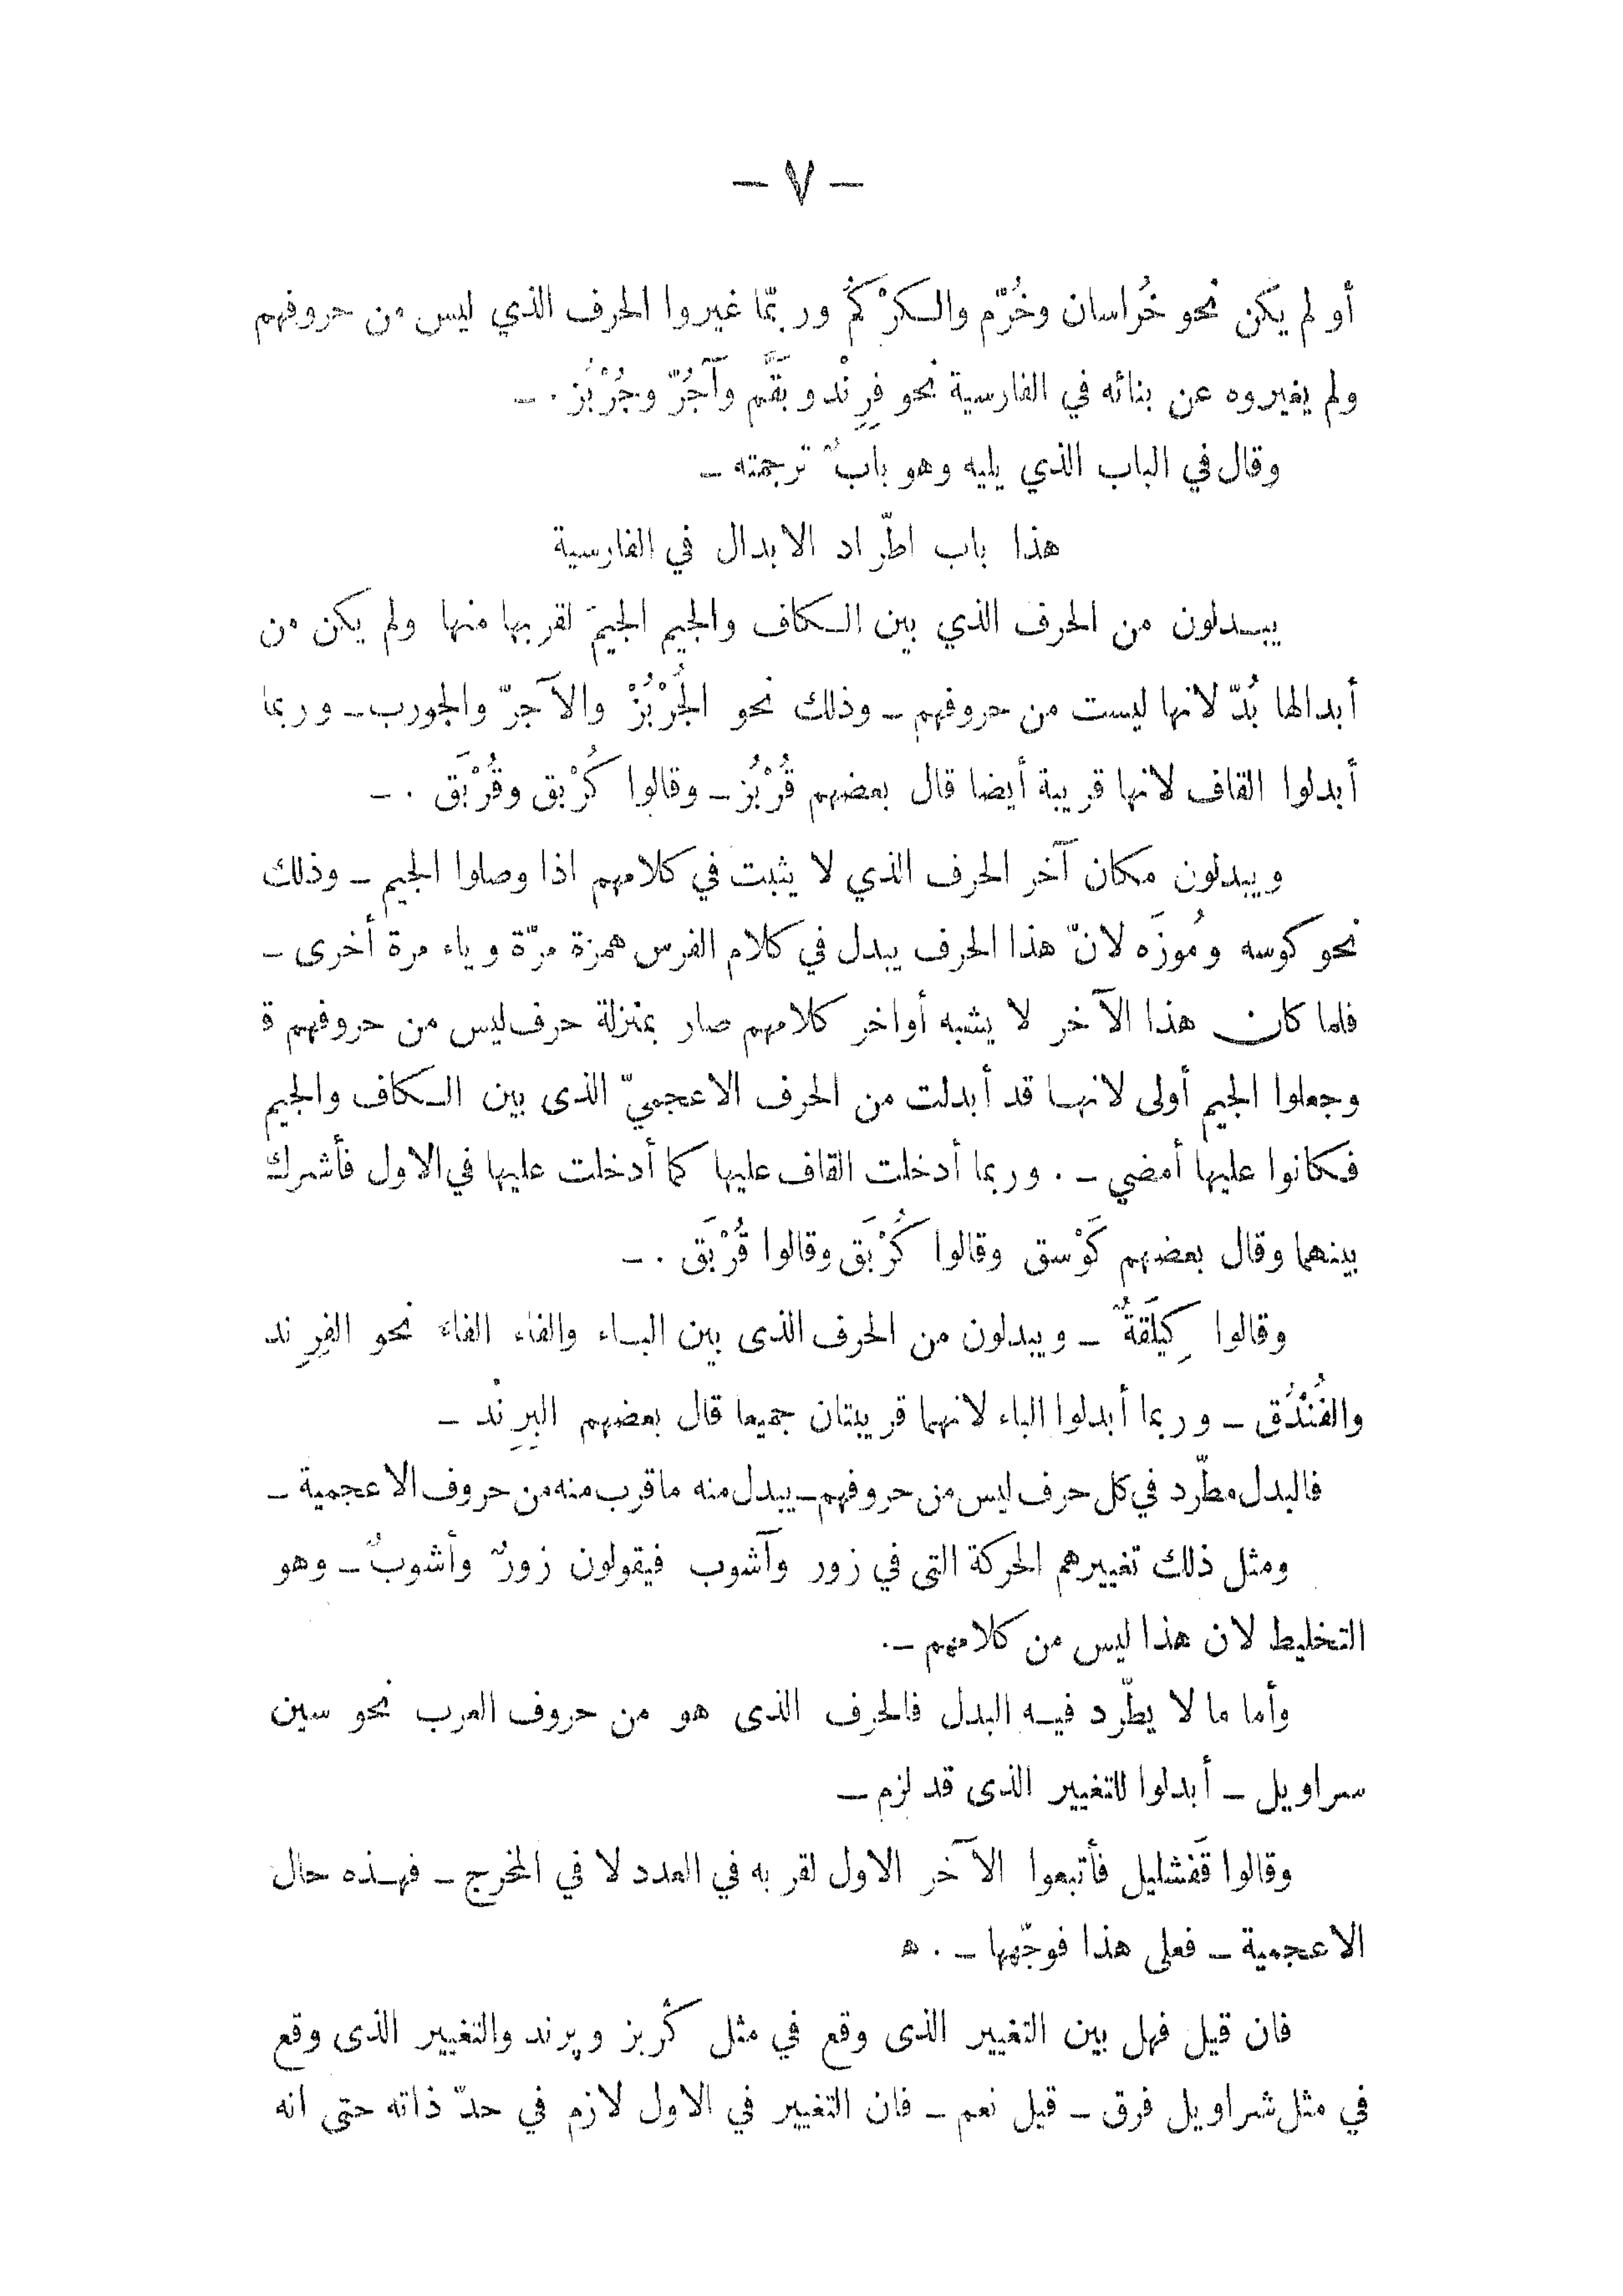 — ٧ —
أو لم يكن نحو خُراسان وخُرّم والكرْكُم وربمّا غيروا الحرف الذي ليس من حروفهم
ولم يغيروه عن بنائه في الفارسية نحو فِرِنْد وبَقَّم وآجُرّ وجُرْبُز . —
وقال في الباب الذي يليه وهو بابٌ ترجمته —
هذا باب اطّراد الابدال في الفارسية
يبدلون من الحرف الذي بين الكاف والجيم الجيمَ لقربها منها ولم يكن من
أبدالها بُدّ لانها ليست من حروفهم — وذلك نحو الجُرْبُزْ والآجرّ والجورب — وربما
أبدلوا القاف لانها قريبة أيضا قال بعضهم قُرْبُز — وقالوا كُرْبق وقُرْبَق . —
ويبدلون مكان آخر الحرف الذي لا يثبت في كلامهم اذا وصلوا الجيم — وذلك
نحو كوسه ومُوزَه لانّ هذا الحرف يبدل في كلام الفرس همزة مرّة وياء مرة أخرى —
فلما كان هذا الآخر لا يشبه أواخر كلامهم صار بمنزلة حرف ليس من حروفهم ة
وجعلوا الجيم أولى لانها قد أبدلت من الحرف الاعجميّ الذى بين الكاف والجيم
فكانوا عليها أمضي — . وربما أدخلت القاف عليها كما أدخلت عليها في الاول فأشرك
بينهما وقال بعضهم كَوْسق وقالوا كُرْبَق وقالوا قُرْبَق . —
وقالوا كِيلَقةٌ — ويبدلون من الحرف الذى بين الباء والفاء الفاءَ نحو الفِرِند
والفُنْدُق — وربما أبدلوا الباء لانهما قريبتان جميعا قال بعضهم البِرِنْد —
فالبدل مطّرد في كل حرف ليس من حروفهم — يبدل منه ما قرب منه من حروف الاعجمية —
ومثل ذلك تغييرهم الحركة التى في زور وآشوب فيقولون زورٌ وأشوبٌ — وهو
التخليط لان هذا ليس من كلامهم — .
وأما ما لا يطّرد فيه البدل فالحرف الذى هو من حروف العرب نحو سين
سراويل — أبدلوا للتغيير الذى قد لزم —
وقالوا قَفشليل فأتبعوا الآخر الاول لقربه في العدد لا في المخرج — فهذه حال
الاعجمية — فعلى هذا فوجّهها — . ه
فان قيل فهل بين التغيير الذى وقع في مثل كُربز وپرند والتغيير الذى وقع
في مثل شراويل فرق — قيل نعم — فان التغيير في الاول لازم في حدّ ذاته حتى انه